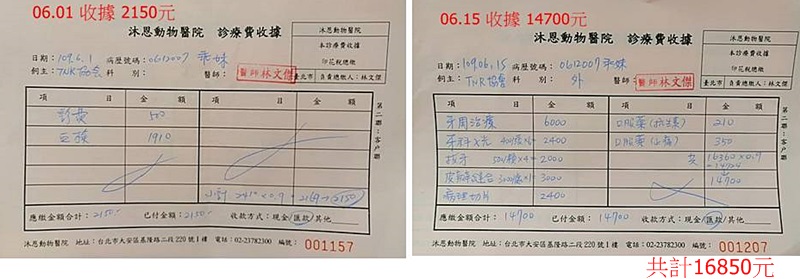 06.01 收據 2150元
沐恩動物醫院 診療費收據
沐恩動物醫院
本診療費收據
印花稅總繳
臺北市 負責總繳人:林文傑
日期:109.6.1 病歷號碼:0612007 乖妹
飼主:TNR協會 科別: 醫師:醫師林文傑
項目 金額 項目 金額
診費 500
血檢 1910
小計 2410×0.9=2169→2150
應繳金額合計:2150 已付金額:2150 收款方式:現金/匯款/其他
第二聯:客戶聯
沐恩動物醫院 地址:台北市大安區基隆路二段220號1樓 電話:02-23782300 編號: 001157
06.15 收據 14700元
沐恩動物醫院 診療費收據
沐恩動物醫院
本診療費收據
印花稅總繳
臺北市 負責總繳人:林文傑
日期:109.06.15 病歷號碼:0612007 乖妹
飼主:TNR協會 科別:外 醫師:醫師林文傑
項目 金額 項目 金額
牙周治療 6000 口服藥(抗生素) 210
牙科X光 2400 口服藥 350
拔牙 500/顆×4 2000 共 16360×0.9
=14724
3000 14700
病理切片 2400
應繳金額合計:14700 已付金額:14700 收款方式:現金/匯款/其他
第二聯:客戶聯
沐恩動物醫院 地址:台北市大安區基隆路二段220號1樓 電話:02-23782300 編號: 001207
共計16850元